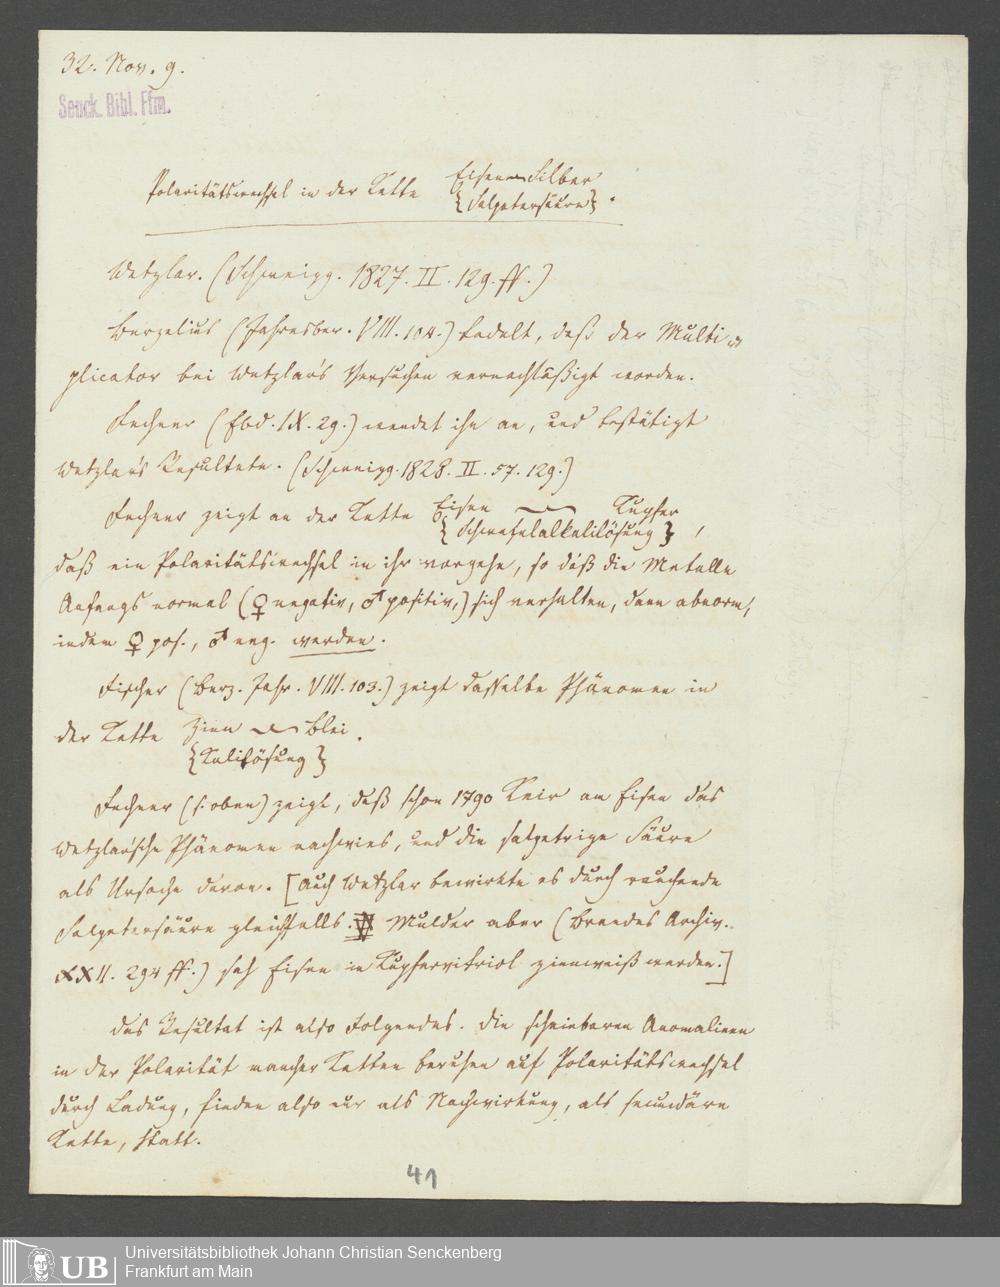 32. Nov. 9.
Senck. Bibl. Ffm.
Polaritätswechsel in der Kette Eisen Silber
{Salpetersäure}.
Wetzlar. (Schweigg. 1827. II. 129. ff.)
Berzelius (Jahresber. VIII. 104.) tadelt, daß der Multi=
plicator bei Wetzlar's Versuchen vernachläßigt worden.
Fechner (Ebd. IX. 29.) wendet ihn an, und bestätigt
Wetzlar's Resultate. (Schweigg. 1828. II. 57. 129.)
Fechner zeigt an der Kette Eisen Kupfer
{Schwefelalkalilösung},
daß ein Polaritätswechsel in ihr vorgehe, so daß die Metalle
Anfangs normal (♀ negativ, ♂ positiv,) sich verhalten, dann abnorm,
indem ♀ pos., ♂ neg. werden.
Fischer (Berz. Jahr. VIII. 103.) zeigt dasselbe Phänomen in
der Kette Zinn Blei.
{Kalilösung}
Fechner (s. oben) zeigt, daß schon 1790 Keir am Eisen das
Wetzlar'sche Phänomen nachwies, und die salpetrige Säure
als Ursache davon. [Auch Wetzlar bewirkte es durch rauchende
Salpetersäure gleichfalls. Mulder aber (Brandes Archiv.
XXII. 294 ff.) sah Eisen in Kupfervitriol zinnweiß werden.]
Das Resultat ist also Folgendes. Die scheinbaren Anomalieen
in der Polarität mancher Ketten beruhen auf Polaritätswechsel
durch Ladung, finden also nur als Nachwirkung, als secundäre
Kette, statt.
41
UB
Universitätsbibliothek Johann Christian Senckenberg
Frankfurt am Main